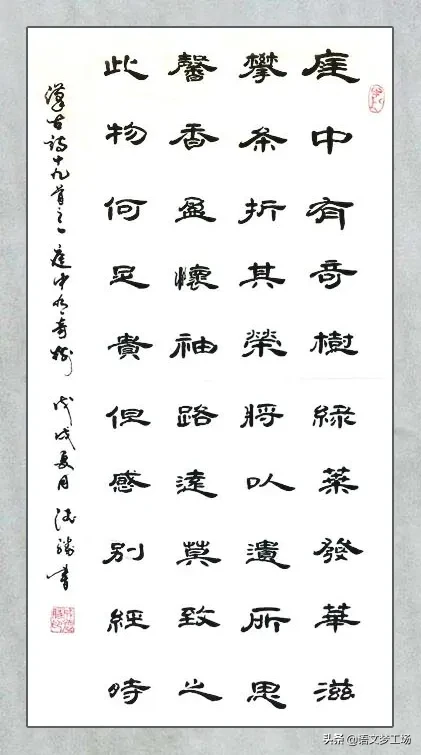 庭中有奇樹綠葉發華滋
攀条折其榮將以遺所思
馨香盈懷袖路遠莫致之
此物何足貴但感別經時
漢古詩十九首之一庭中有奇樹 戊戌夏月 書
头条 @语文梦工场